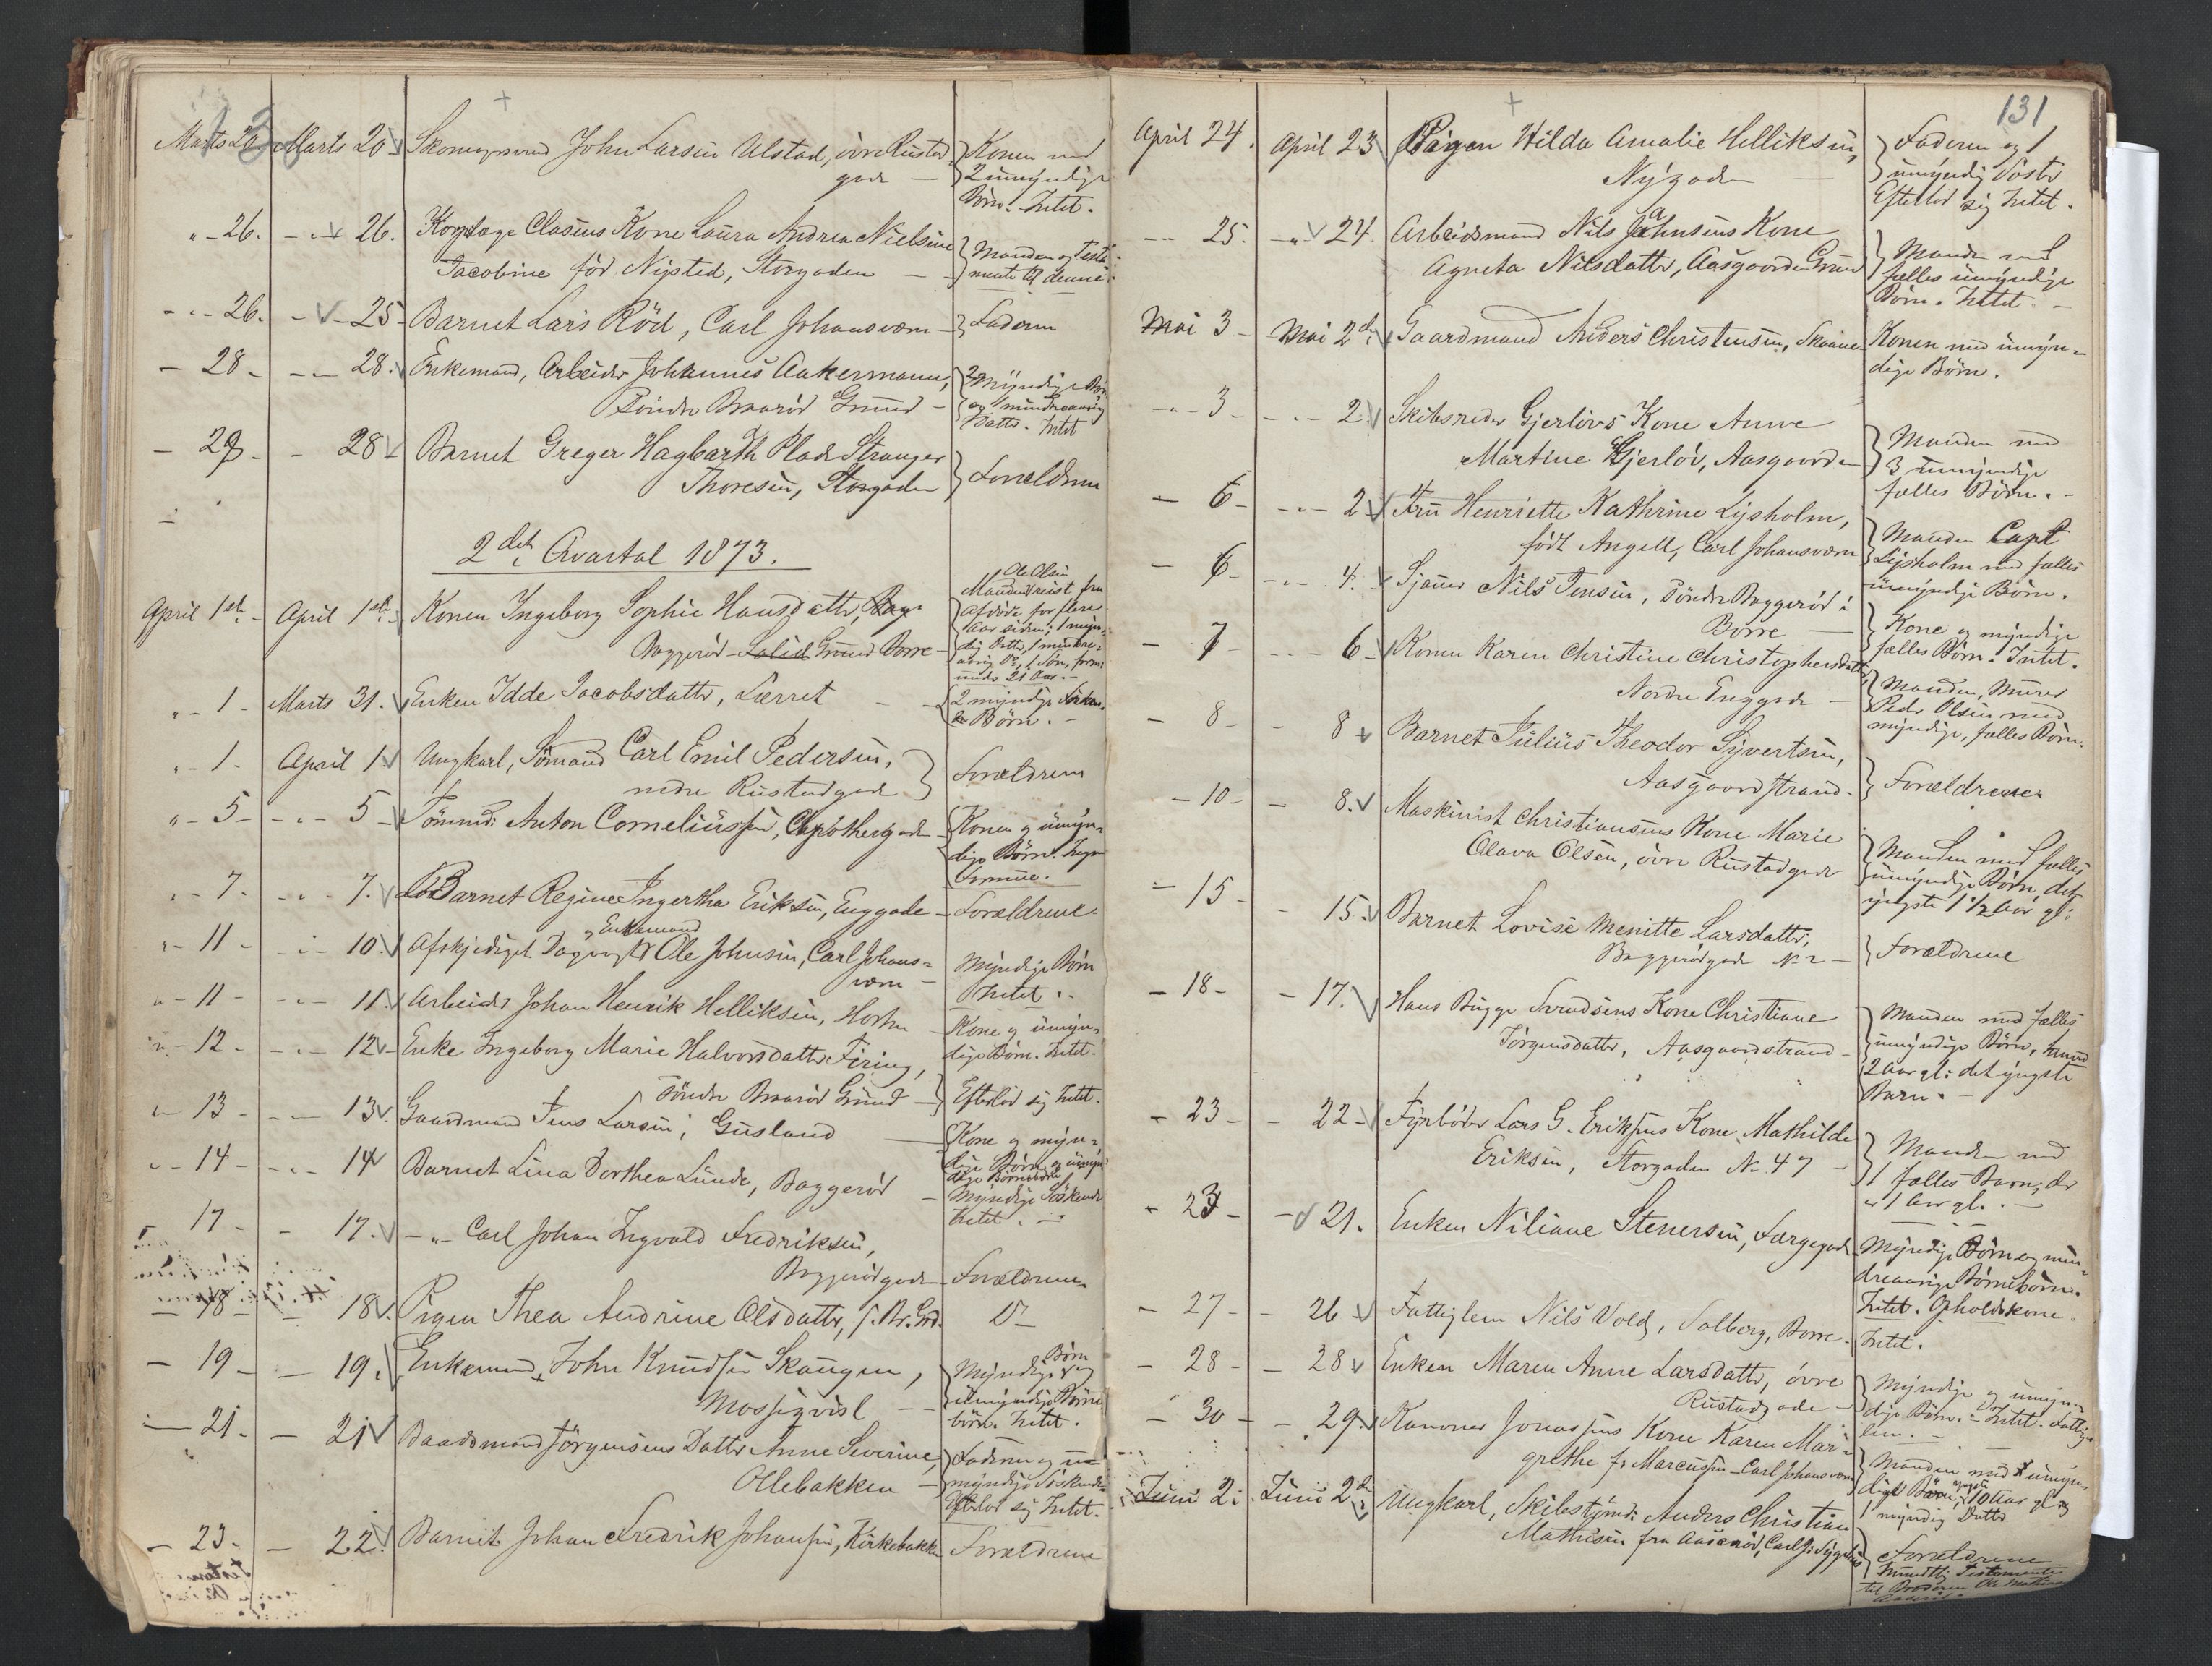 Marts 20 Marts 20 Skomagersvend John Larsen Ulstad, övre Rustad- Konen med
gade — 2 umyndige
Börn. Intet.
" - 26. - " - 26. Clasens Kone Laura Andrea Nielsine Manden og Testa-
Jacobine föd Nysted, Storgaden — mente til denne.
- " - 26. - 25 - Barnet Lars Röd, Carl Johansværn - Faderen
- 28 - - " - 28. Enkemand, Arbeider Johannes Aakermann, 2 Myndige Börn
Söndre Braaröd Grund - og 1 mindreaarig
Datter. Intet
- 29 - - 28 - Barnet Greger Hagbarth Stranger
Thoresen, Storgaden Forældrene
2det Qvartal 1873.
Ole Olsen
Manden reist fra
April 1ste - April 1ste - Konen Ingeborg Sophie Hansdatter, afdöde for flere
Aar siden; 1 myn-
Baggeröd - Solid Grund Borre - dig Datter, 1 mindre-
aarig Do, 1 Sön,
under 21 Aar. -
" - 1 - Marts 31. Enken Idde Jacobsdatter, Lærret - - 2 myndige
Börn. -
" - 1 - April 1 Ungkarl, Sömand Carl Emil Pedersen,
nedre Rustadgade Forældrene
" - 5 - - " - 5 - Tömmd: Anton Corneliussen, Apothergade - Konen og umyn-
dige Börn. Ingen
Formue.
" - 7. - " - 7. Barnet Regine Ingertha Eriksen, Enggade - Forældrene.
og Enkemand
" - 11 - - " - 10. Afskjediget Dagvagt Ole Johnsen, Carl Johans-
værn - Myndige Börn
Intet. -
" - 11 - - " - 11. Arbeider Johan Henrik Helliksen, Horten - Kone og umyn-
dige Börn. Intet.
" - 12 - - " - 12 - Enke Ingeborg Marie Halvorsdatter Firing,
Söndre Braaröd Grund — Efterlod sig Intet.
" - 13 - - " - 13. Gaardmand Jens Larsen, Gusland — Kone og myn-
dige Börn og umyn-
dige Börnebörn
" - 14 - - " - 14 Barnet Lina Dorthea Lunde, Baggeröd - Myndige Söskende
Intet. -
- 17 - - 17. - " - Carl Johan Ingvald Fredriksen,
Baggerödgade - Forældrene
- 18 - - 18. Pigen Thea Andrine Olsdatter, S. Br. Grd. Do -
- 19 - - 19. Enkemand, John Knudsen Skaugen, Myndige Börn og
umyndige Börne-
börn. Intet.
- 21. - 21 Baadsmand Jörgensens Datter Anne Severine, Faderen og u-
Ollebakken - myndige Söskende
Efterlod sig Intet.
- 23. - 22. Barnet Johan Fredrik Johansen, Kirkebakken Forældrene
131
April 24. April 23 Pigen Hilda Amalie Helliksen, Faderen og 1
Nygaden — umyndig Söster
Efterlod sig Intet.
- - 25. - " - 24. Arbeidsmand Nils Jahnsens Kone
Agneta Nilsdatter, Aasgaarden Grund Manden med
fælles umyndige
Börn. Intet. -
Mai 3 - Mai 2den Gaardmand Anders Christensen, Skaane - Konen med umyn-
dige Börn.
- " - 3 - - " - 2 Skibsreder Gjerlövs Kone Anne
Martine Gjerlöv, Aasgaarden Manden med
3 umyndige
fælles Börn. -
- 6 - - " - 2 Fru Henriette Kathrine Lysholm,
födt Angell, Carl Johansværn Manden Capt
Lysholm med fælles
umyndige Börn.
- 6 - - " - 4. Sjauer Nils Jensen, Söndre Baggeröd i
Borre — Kone og myndige
fælles Börn. Intet.
- 7 - - " - 6 - Konen Karen Christine Christophersdatter,
Nordre Enggade - Manden, Murer
Peder Olsen med
myndige, fælles Börn.
- 8 - - 8 Barnet Julius Theodor Syvertsen,
Aasgaardstrand - Forældrene.
- 10 - - 8. Maskinist Christiansens Kone Marie
Olava Olsen, övre Rustadgade Manden med fælles
umyndige Börn, det
yngste 1 1/2 Aar gl:
- 15 - - 15. Barnet Lovise Menitte Larsdatter,
Baggerödgade No 2 - Forældrene
- 18 - - 17. Hans Bugge Svendsens Kone Christiane
Jörgensdatter, Aasgaardstrand - Manden med fælles
umyndige Börn,
2 Aar gl: det yngste
Barn. -
- 23 - - 22 - Fyrböder Lars G. Eriksens Kone Mathilde
Eriksen, Storgaden No 47 - Manden med
1 fælles Barn, der
er 1 Aar gl. -
- 23 - - 21. Enken Niliane Stenersen, Færgegade - Myndige Börn og min-
dreaarige Börnebörn.
Intet. Opholdskone.
- 27 - - 26 Fattiglem Nils Vold, Solberg, Borre - Intet.
- 28 - - 28 Enken Maren Anne Larsdatter, övre
Rustadgade - Myndige og umyn-
dige Börn. - Intet. Fattig-
lem. -
- 30 - - 29. Kanoner Jonassens Kone Karen Mar-
grethe f. Marcussen - Carl Johansværn Manden med umyn-
dige Börn, yngste 10 Aar gl og
1 myndig Datter
Juni 2. Juni 2den Ungkarl, Skibstömd: Anders Christian
Mathisen fra Aaseröd, Carl J: Sygehus Forældrene
Mundtlig Testamente
til Broderen Ole